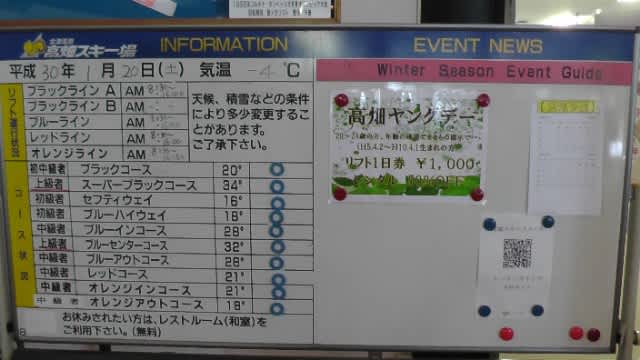 高畑スキー場 INFORMATION
平成30年1月20日(土) 気温 -4℃
リフト運行状況
ブラックライン A AM
ブラックライン B AM
ブルーライン AM
レッドライン AM
オレンジライン AM
天候、積雪などの条件
により多少変更するこ
とがあります。
ご了承下さい。
コース状況
初中級者 ブラックコース 20° ○
上級者 スーパーブラックコース 34° ○
初級者 セフティウェイ 16° ○
初級者 ブルーハイウェイ 18° ○
中級者 ブルーインコース 28° ○
上級者 ブルーセンターコース 32° ○
中級者 ブルーアウトコース 28° ○
中級者 レッドコース 21° ○
中級者 オレンジインコース 21° ○
中級者 オレンジアウトコース 18° ○
お休みされたい方は、レストルーム(和室)を
ご利用下さい。(無料)
EVENT NEWS
Winter Season Event Guide
高畑ヤングデー
(H5.4.2〜H10.4.1生まれの方)
リフト1日券 ¥1,000